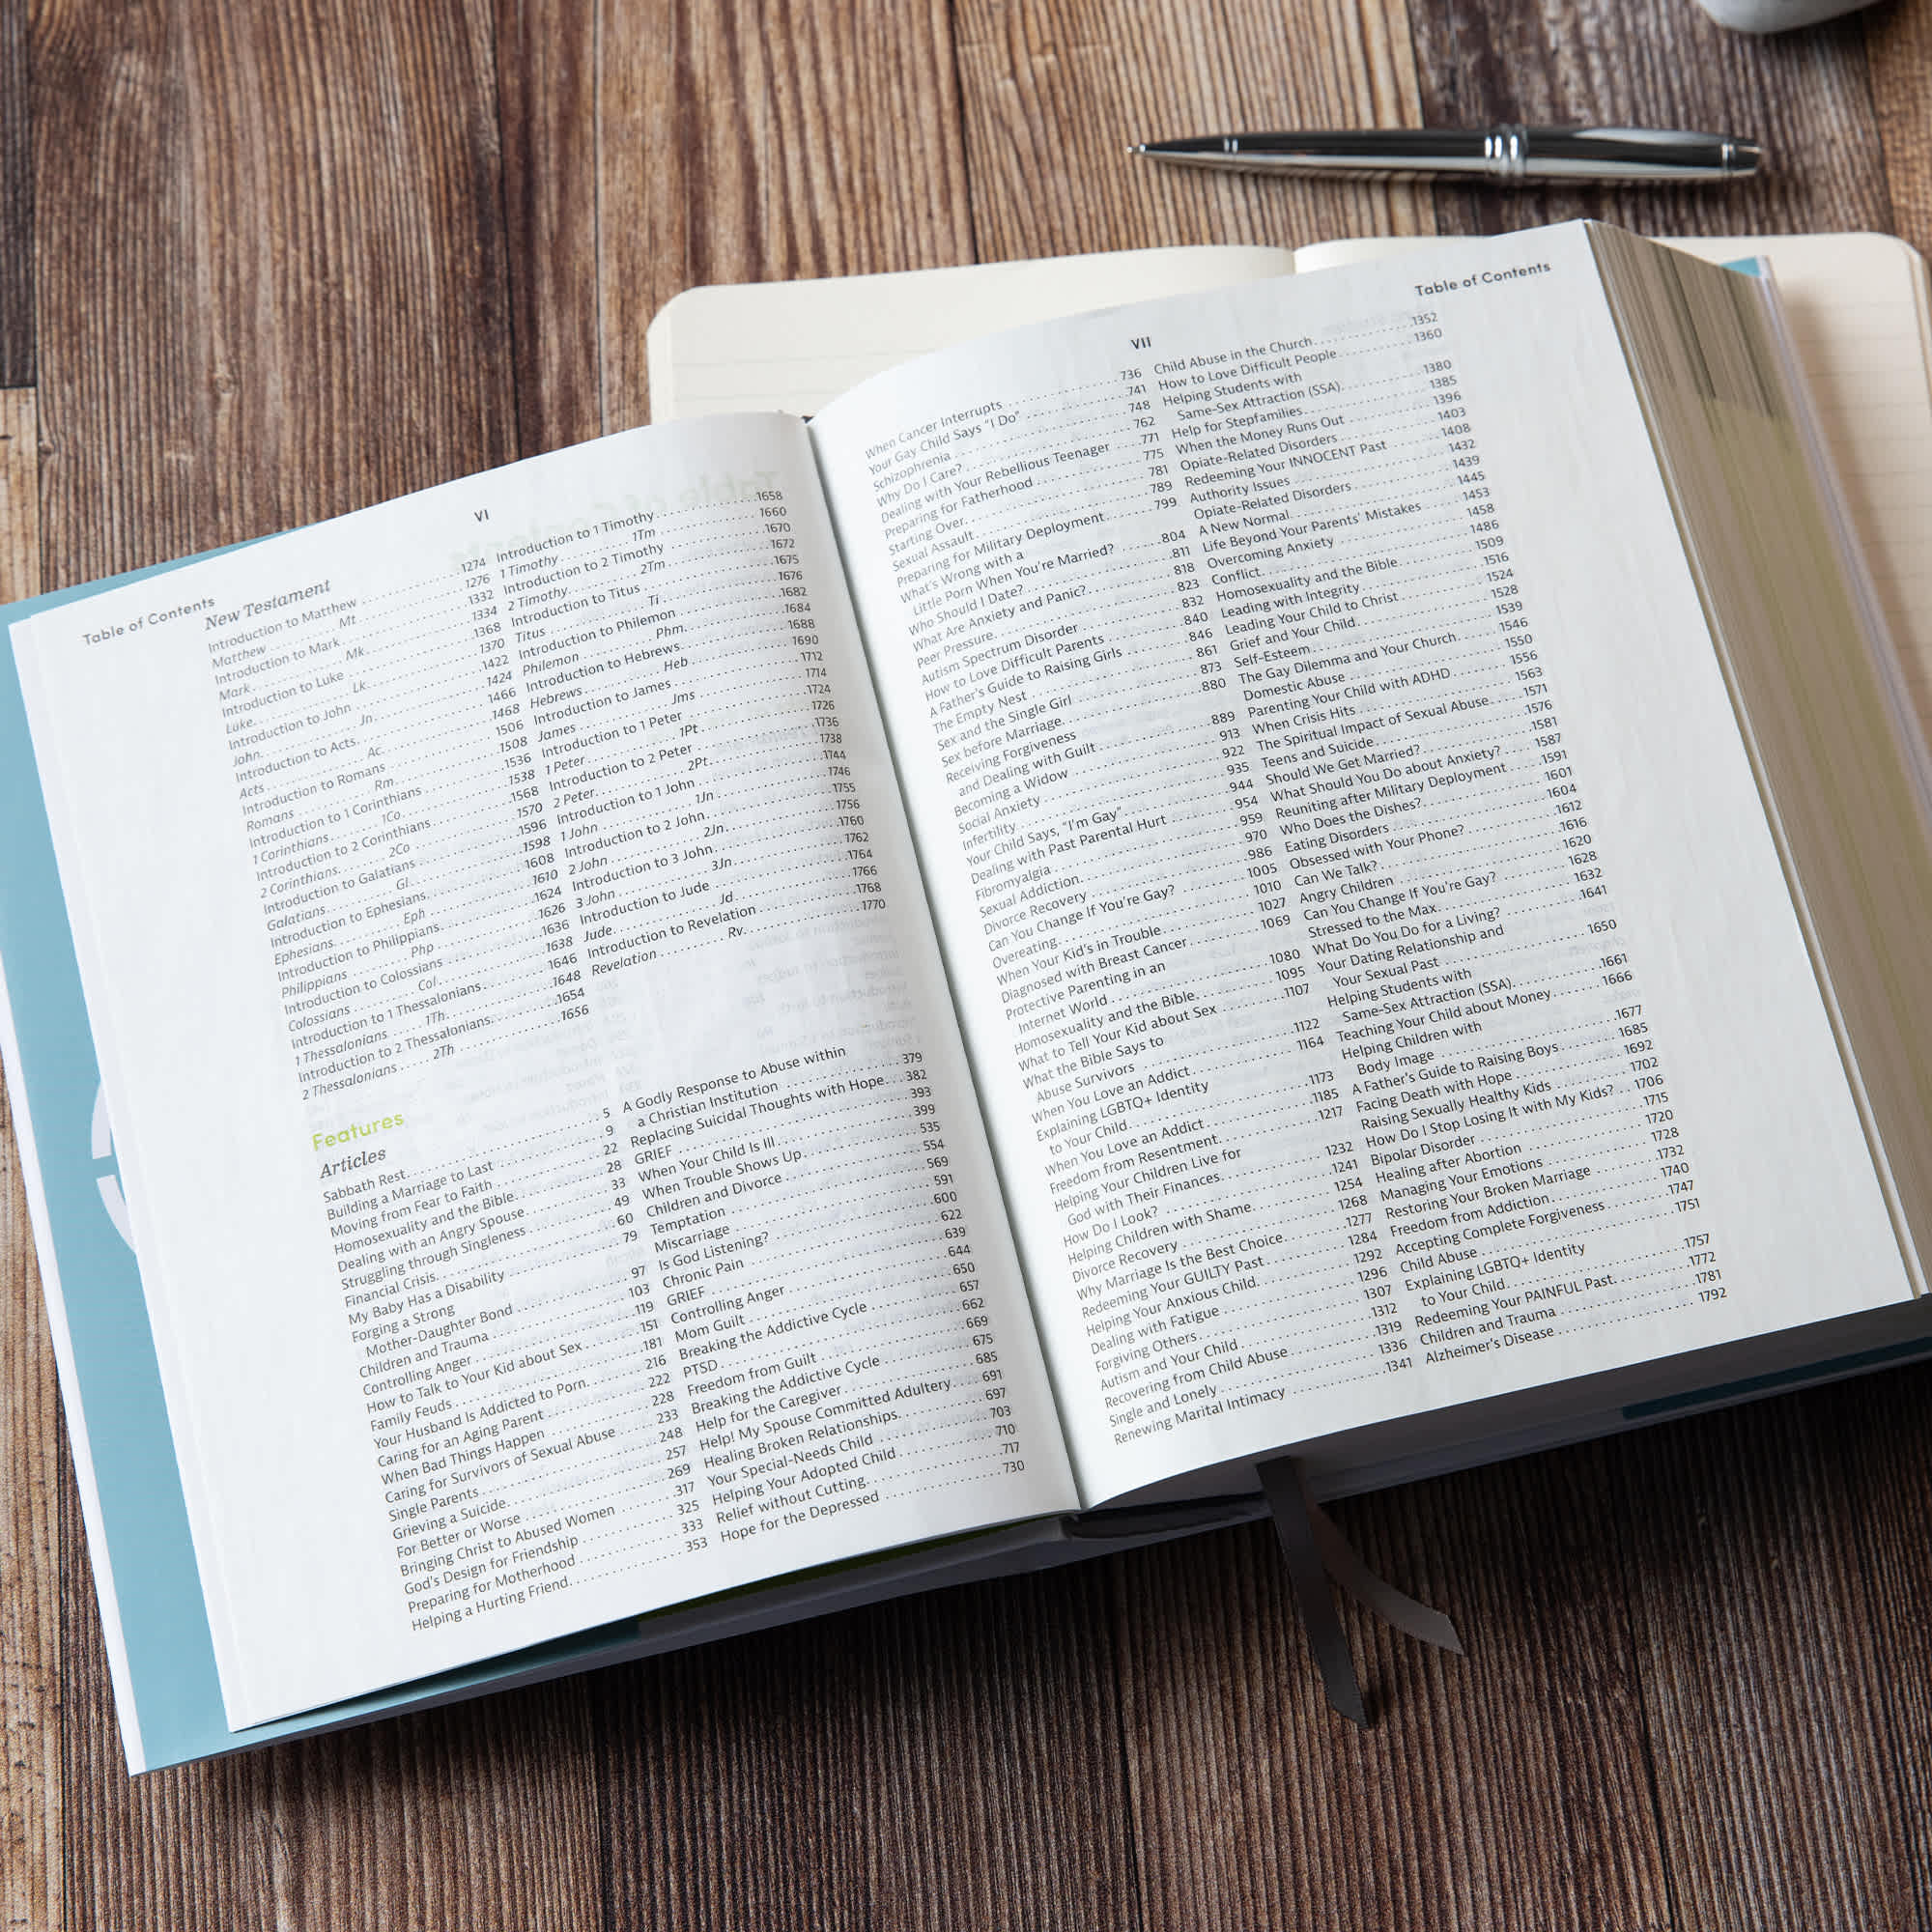 Table of Contents
VI
New Testament
Introduction to Matthew . . . 1274
Matthew . . . Mt . . . 1276
Introduction to Mark . . . 1332
Mark . . . Mk . . . 1334
Introduction to Luke . . . 1368
Luke . . . Lk . . . 1370
Introduction to John . . . 1422
John . . . Jn . . . 1424
Introduction to Acts . . . 1466
Acts . . . Ac . . . 1468
Introduction to Romans . . . 1506
Romans . . . Rm . . . 1508
Introduction to 1 Corinthians . . . 1536
1 Corinthians . . . 1Co . . . 1538
Introduction to 2 Corinthians . . . 1568
2 Corinthians . . . 2Co . . . 1570
Introduction to Galatians . . . 1596
Galatians . . . Gl . . . 1598
Introduction to Ephesians . . . 1608
Ephesians . . . Eph . . . 1610
Introduction to Philippians . . . 1624
Philippians . . . Php . . . 1626
Introduction to Colossians . . . 1636
Colossians . . . Col . . . 1638
Introduction to 1 Thessalonians . . . 1646
1 Thessalonians . . . 1Th . . . 1648
Introduction to 2 Thessalonians . . . 1654
2 Thessalonians . . . 2Th . . . 1656
Introduction to 1 Timothy . . . 1658
1 Timothy . . . 1Tm . . . 1660
Introduction to 2 Timothy . . . 1670
2 Timothy . . . 2Tm . . . 1672
Introduction to Titus . . . 1675
Titus . . . Ti . . . 1676
Introduction to Philemon . . . 1682
Philemon . . . Phm . . . 1684
Introduction to Hebrews . . . 1688
Hebrews . . . Heb . . . 1690
Introduction to James . . . 1712
James . . . Jms . . . 1714
Introduction to 1 Peter . . . 1724
1 Peter . . . 1Pt . . . 1726
Introduction to 2 Peter . . . 1736
2 Peter . . . 2Pt . . . 1738
Introduction to 1 John . . . 1744
1 John . . . 1Jn . . . 1746
Introduction to 2 John . . . 1755
2 John . . . 2Jn . . . 1756
Introduction to 3 John . . . 1760
3 John . . . 3Jn . . . 1762
Introduction to Jude . . . 1764
Jude . . . Jd . . . 1766
Introduction to Revelation . . . 1768
Revelation . . . Rv . . . 1770
Features
Articles
Sabbath Rest . . . 5
Building a Marriage to Last . . . 9
Moving from Fear to Faith . . . 22
Homosexuality and the Bible . . . 28
Dealing with an Angry Spouse . . . 33
Struggling through Singleness . . . 49
Financial Crisis . . . 60
My Baby Has a Disability . . . 79
Forging a Strong
Mother-Daughter Bond . . . 97
Children and Trauma . . . 103
Controlling Anger . . . 119
How to Talk to Your Kid about Sex . . . 151
Family Feuds . . . 181
Your Husband Is Addicted to Porn . . . 216
Caring for an Aging Parent . . . 222
When Bad Things Happen . . . 228
Caring for Survivors of Sexual Abuse . . . 233
Single Parents . . . 248
Grieving a Suicide . . . 257
For Better or Worse . . . 269
Bringing Christ to Abused Women . . . 317
God's Design for Friendship . . . 325
Preparing for Motherhood . . . 333
Helping a Hurting Friend . . . 353
A Godly Response to Abuse within
a Christian Institution . . . 379
Replacing Suicidal Thoughts with Hope . . . 382
GRIEF . . . 393
When Your Child Is Ill . . . 399
When Trouble Shows Up . . . 535
Children and Divorce . . . 554
Temptation . . . 569
Miscarriage . . . 591
Is God Listening? . . . 600
Chronic Pain . . . 622
GRIEF . . . 639
Controlling Anger . . . 644
Mom Guilt . . . 650
Breaking the Addictive Cycle . . . 657
PTSD . . . 662
Freedom from Guilt . . . 669
Breaking the Addictive Cycle . . . 675
Help for the Caregiver . . . 685
Help! My Spouse Committed Adultery . . . 691
Healing Broken Relationships . . . 697
Your Special-Needs Child . . . 703
Helping Your Adopted Child . . . 710
Relief without Cutting . . . 717
Hope for the Depressed . . . 730
VII
Table of Contents
When Cancer Interrupts . . . 736
Your Gay Child Says "I Do" . . . 741
Schizophrenia . . . 748
Why Do I Care? . . . 762
Dealing with Your Rebellious Teenager . . . 771
Preparing for Fatherhood . . . 775
Starting Over . . . 781
Sexual Assault . . . 789
Preparing for Military Deployment . . . 799
What's Wrong with a
Little Porn When You're Married? . . . 804
Who Should I Date? . . . 811
What Are Anxiety and Panic? . . . 818
Peer Pressure . . . 823
Autism Spectrum Disorder . . . 832
How to Love Difficult Parents . . . 840
A Father's Guide to Raising Girls . . . 846
The Empty Nest . . . 861
Sex and the Single Girl . . . 873
Sex before Marriage . . . 880
Receiving Forgiveness
and Dealing with Guilt . . . 889
Becoming a Widow . . . 913
Social Anxiety . . . 922
Infertility . . . 935
Your Child Says, "I'm Gay" . . . 944
Dealing with Past Parental Hurt . . . 954
Fibromyalgia . . . 959
Sexual Addiction . . . 970
Divorce Recovery . . . 986
Can You Change If You're Gay? . . . 1005
Overeating . . . 1010
When Your Kid's in Trouble . . . 1027
Diagnosed with Breast Cancer . . . 1069
Protective Parenting in an
Internet World . . . 1080
Homosexuality and the Bible . . . 1095
What to Tell Your Kid about Sex . . . 1107
What the Bible Says to
Abuse Survivors . . . 1122
When You Love an Addict . . . 1164
Explaining LGBTQ+ Identity
to Your Child . . . 1173
When You Love an Addict . . . 1185
Freedom from Resentment . . . 1217
Helping Your Children Live for
God with Their Finances . . . 1232
How Do I Look? . . . 1241
Helping Children with Shame . . . 1254
Divorce Recovery . . . 1268
Why Marriage Is the Best Choice . . . 1277
Redeeming Your GUILTY Past . . . 1284
Helping Your Anxious Child . . . 1292
Dealing with Fatigue . . . 1296
Forgiving Others . . . 1307
Autism and Your Child . . . 1312
Recovering from Child Abuse . . . 1319
Single and Lonely . . . 1336
Renewing Marital Intimacy . . . 1341
Child Abuse in the Church . . . 1352
How to Love Difficult People . . . 1360
Helping Students with
Same-Sex Attraction (SSA) . . . 1380
Help for Stepfamilies . . . 1385
When the Money Runs Out . . . 1396
Opiate-Related Disorders . . . 1403
Redeeming Your INNOCENT Past . . . 1408
Authority Issues . . . 1432
Opiate-Related Disorders . . . 1439
A New Normal . . . 1445
Life Beyond Your Parents' Mistakes . . . 1453
Overcoming Anxiety . . . 1458
Conflict . . . 1486
Homosexuality and the Bible . . . 1509
Leading with Integrity . . . 1516
Leading Your Child to Christ . . . 1524
Grief and Your Child . . . 1528
Self-Esteem . . . 1539
The Gay Dilemma and Your Church . . . 1546
Domestic Abuse . . . 1550
Parenting Your Child with ADHD . . . 1556
When Crisis Hits . . . 1563
The Spiritual Impact of Sexual Abuse . . . 1571
Teens and Suicide . . . 1576
Should We Get Married? . . . 1581
What Should You Do about Anxiety? . . . 1587
Reuniting after Military Deployment . . . 1591
Who Does the Dishes? . . . 1601
Eating Disorders . . . 1604
Obsessed with Your Phone? . . . 1612
Can We Talk? . . . 1616
Angry Children . . . 1620
Can You Change If You're Gay? . . . 1628
Stressed to the Max . . . 1632
What Do You Do for a Living? . . . 1641
Your Dating Relationship and
Your Sexual Past . . . 1650
Helping Students with
Same-Sex Attraction (SSA) . . . 1661
Teaching Your Child about Money . . . 1666
Helping Children with
Body Image . . . 1677
A Father's Guide to Raising Boys . . . 1685
Facing Death with Hope . . . 1692
Raising Sexually Healthy Kids . . . 1702
How Do I Stop Losing It with My Kids? . . . 1706
Bipolar Disorder . . . 1715
Healing after Abortion . . . 1720
Managing Your Emotions . . . 1728
Restoring Your Broken Marriage . . . 1732
Freedom from Addiction . . . 1740
Accepting Complete Forgiveness . . . 1747
Child Abuse . . . 1751
Explaining LGBTQ+ Identity
to Your Child . . . 1757
Redeeming Your PAINFUL Past . . . 1772
Children and Trauma . . . 1781
Alzheimer's Disease . . . 1792